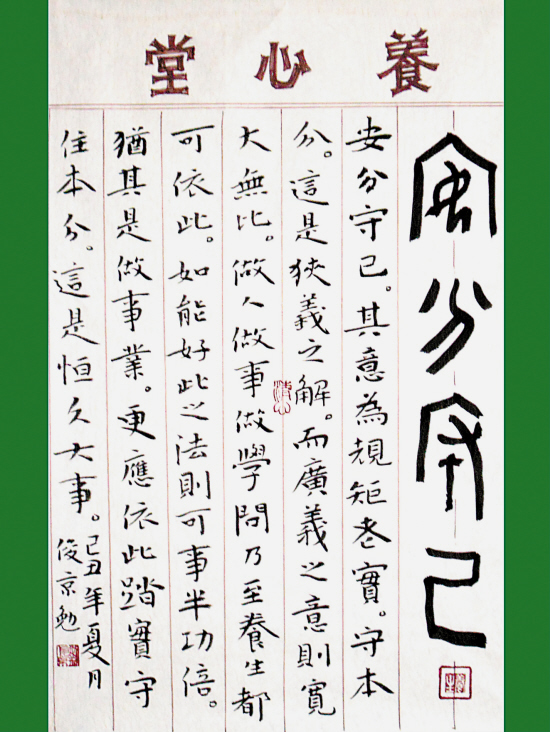 養心堂
安分守己
安分守己。其意為規矩老實。守本
分。這是狹義之解。而廣義之意則寬
大無比。做人做事做學問乃至養生都
可依此。如能好此之法則可事半功倍。
猶其是做事業。更應依此踏實守
住本分。這是恒久大事。
己丑年夏月
俊京勉